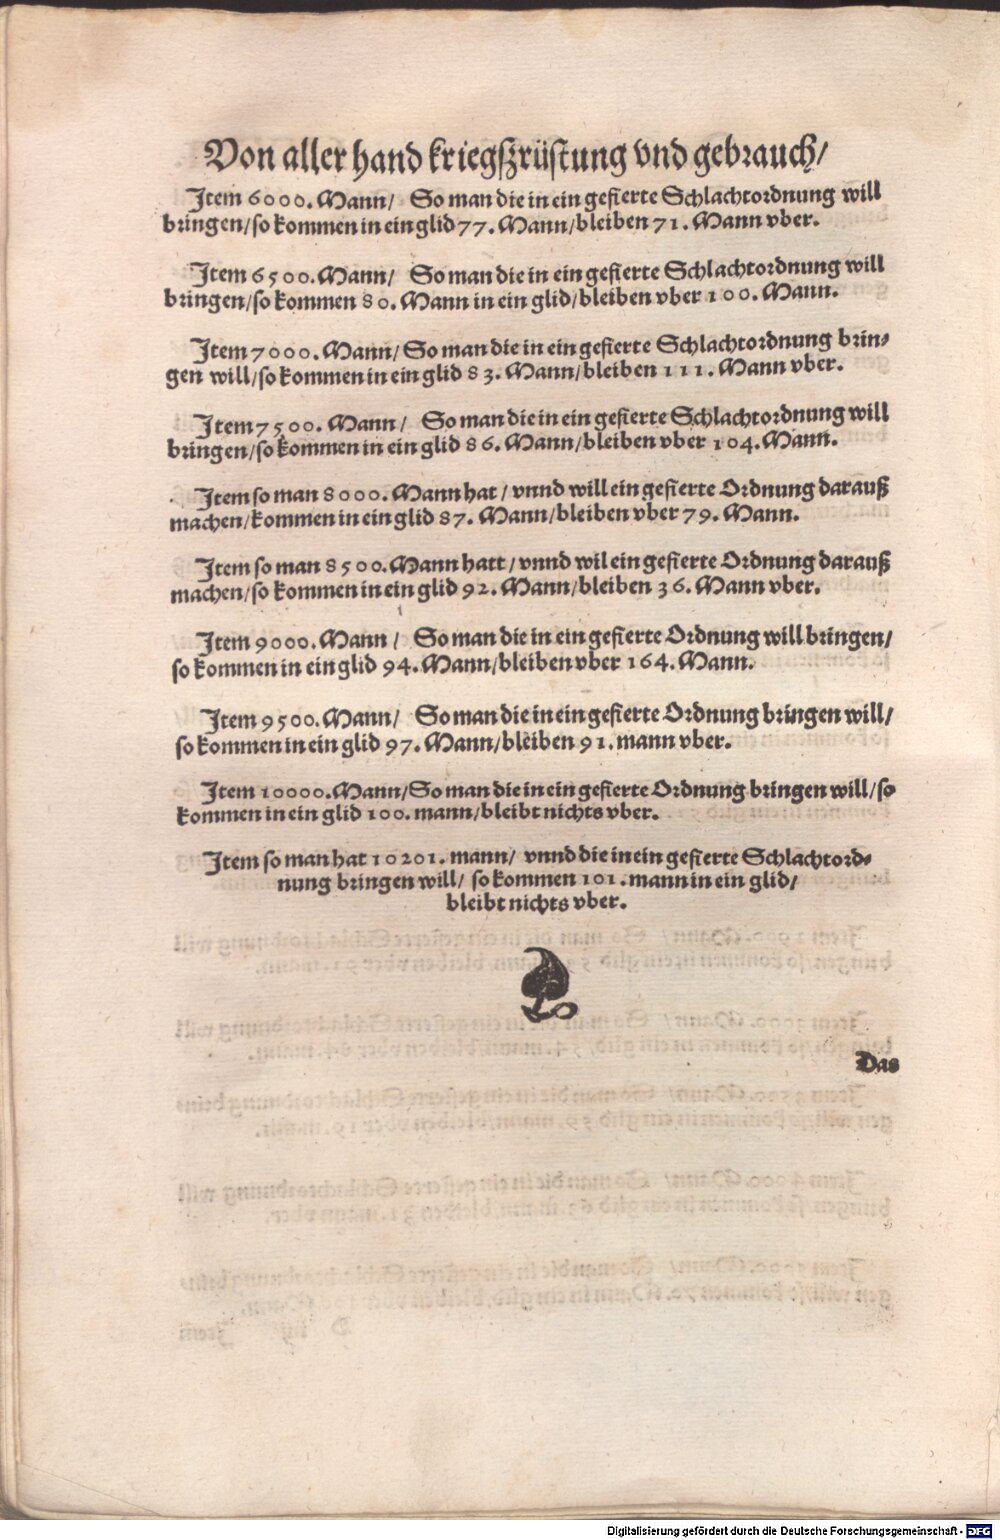 Von aller hand kriegßrüstung vnd gebrauch/
Item 6000. Mann/ So man die in ein gefierte Schlachtordnung will
bringen/so kommen in ein glid 77. Mann/bleiben 71. Mann vber.
Item 6500. Mann/ So man die in ein gefierte Schlachtordnung will
bringen/so kommen 80. Mann in ein glid/bleiben vber 100. Mann.
Item 7000. Mann/ So man die in ein gefierte Schlachtordnung brin-
gen will/so kommen in ein glid 83. Mann/bleiben 111. Mann vber.
Item 7500. Mann/ So man die in ein gefierte Schlachtordnung will
bringen/so kommen in ein glid 86. Mann/bleiben vber 104. Mann.
Item so man 8000. Mann hat/ vnnd will ein gefierte Ordnung darauß
machen/kommen in ein glid 87. Mann/bleiben vber 79. Mann.
Item so man 8500. Mann hatt/ vnnd wil ein gefierte Ordnung darauß
machen/so kommen in ein glid 92. Mann/bleiben 36. Mann vber.
Item 9000. Mann/ So man die in ein gefierte Ordnung will bringen/
so kommen in ein glid 94. Mann/bleiben vber 164. Mann.
Item 9500. Mann/ So man die in ein gefierte Ordnung bringen will/
so kommen in ein glid 97. Mann/bleiben 91. mann vber.
Item 10000. Mann/So man die in ein gefierte Ordnung bringen will/so
kommen in ein glid 100. mann/bleibt nichts vber.
Item so man hat 10201. mann/ vnnd die in ein gefierte Schlachtord-
nung bringen will/ so kommen 101. mann in ein glid/
bleibt nichts vber.
Das
Digitalisierung gefördert durch die Deutsche Forschungsgemeinschaft - DFG